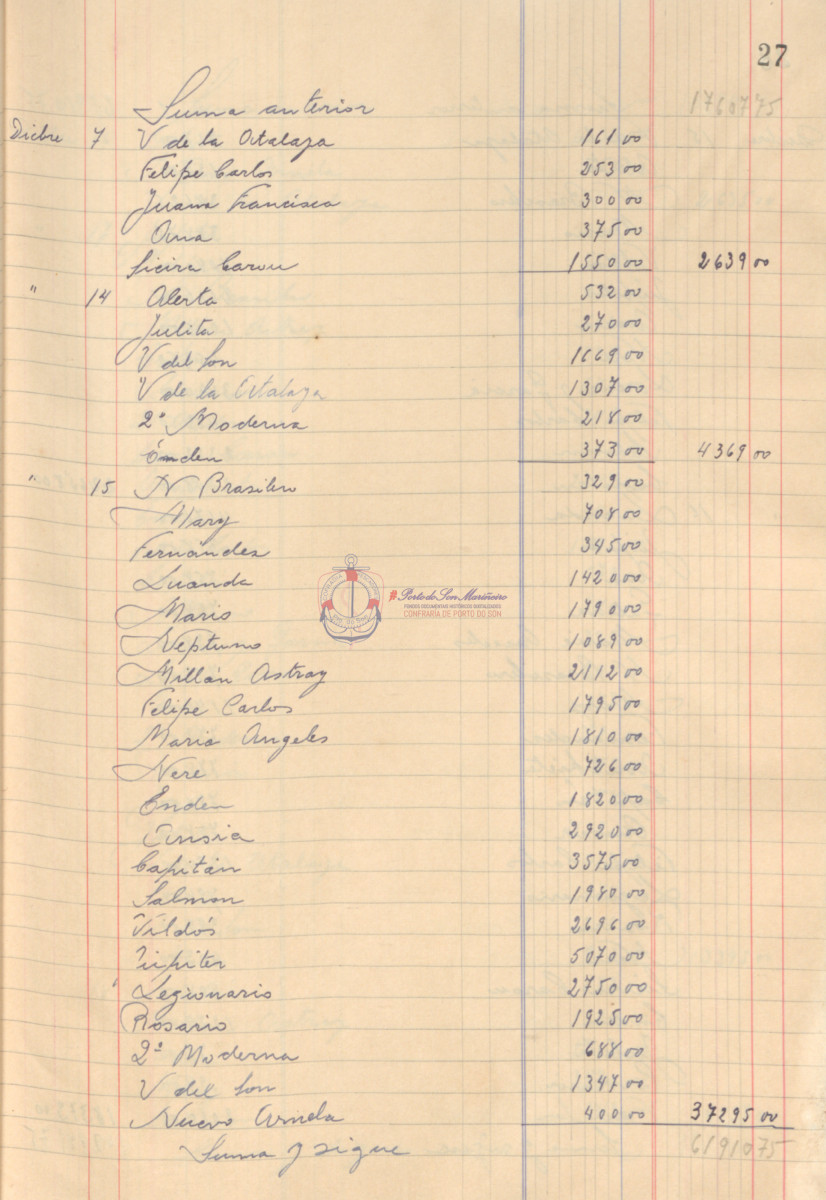 27
Suma anterior 1760775
Dicbre 7 V de la Atalaya 161 00
Felipe Carlos 253 00
Juana Francisca 300 00
Ama 375 00
1550 00 2639 00
" 14 Alerta 532 00
Julita 270 00
V del Son 1669 00
V de la Atalaya 1307 00
2ª Moderna 218 00
373 00 4369 00
" 15 N Brasilero 329 00
Mary 708 00
Fernández 345 00
Luanda 1420 00
Mario 1790 00
Neptuno 1089 00
Millán Astray 2112 00
Felipe Carlos 1795 00
Maria Angeles 1810 00
Nere 726 00
Enden 1820 00
Ansia 2920 00
Capitán 3575 00
Salmon 1980 00
Tildós 2696 00
Jupiter 5070 00
Legionario 2750 00
Rosario 1925 00
2ª Moderna 688 00
V del Son 1347 00
Nuevo Arnela 400 00 37295 00
Suma y sigue 6191075
#PortodoSonMariñeiro
FONDOS DOCUMENTAIS HISTÓRICOS DIXITALIZADOS
CONFRARÍA DE PORTO DO SON